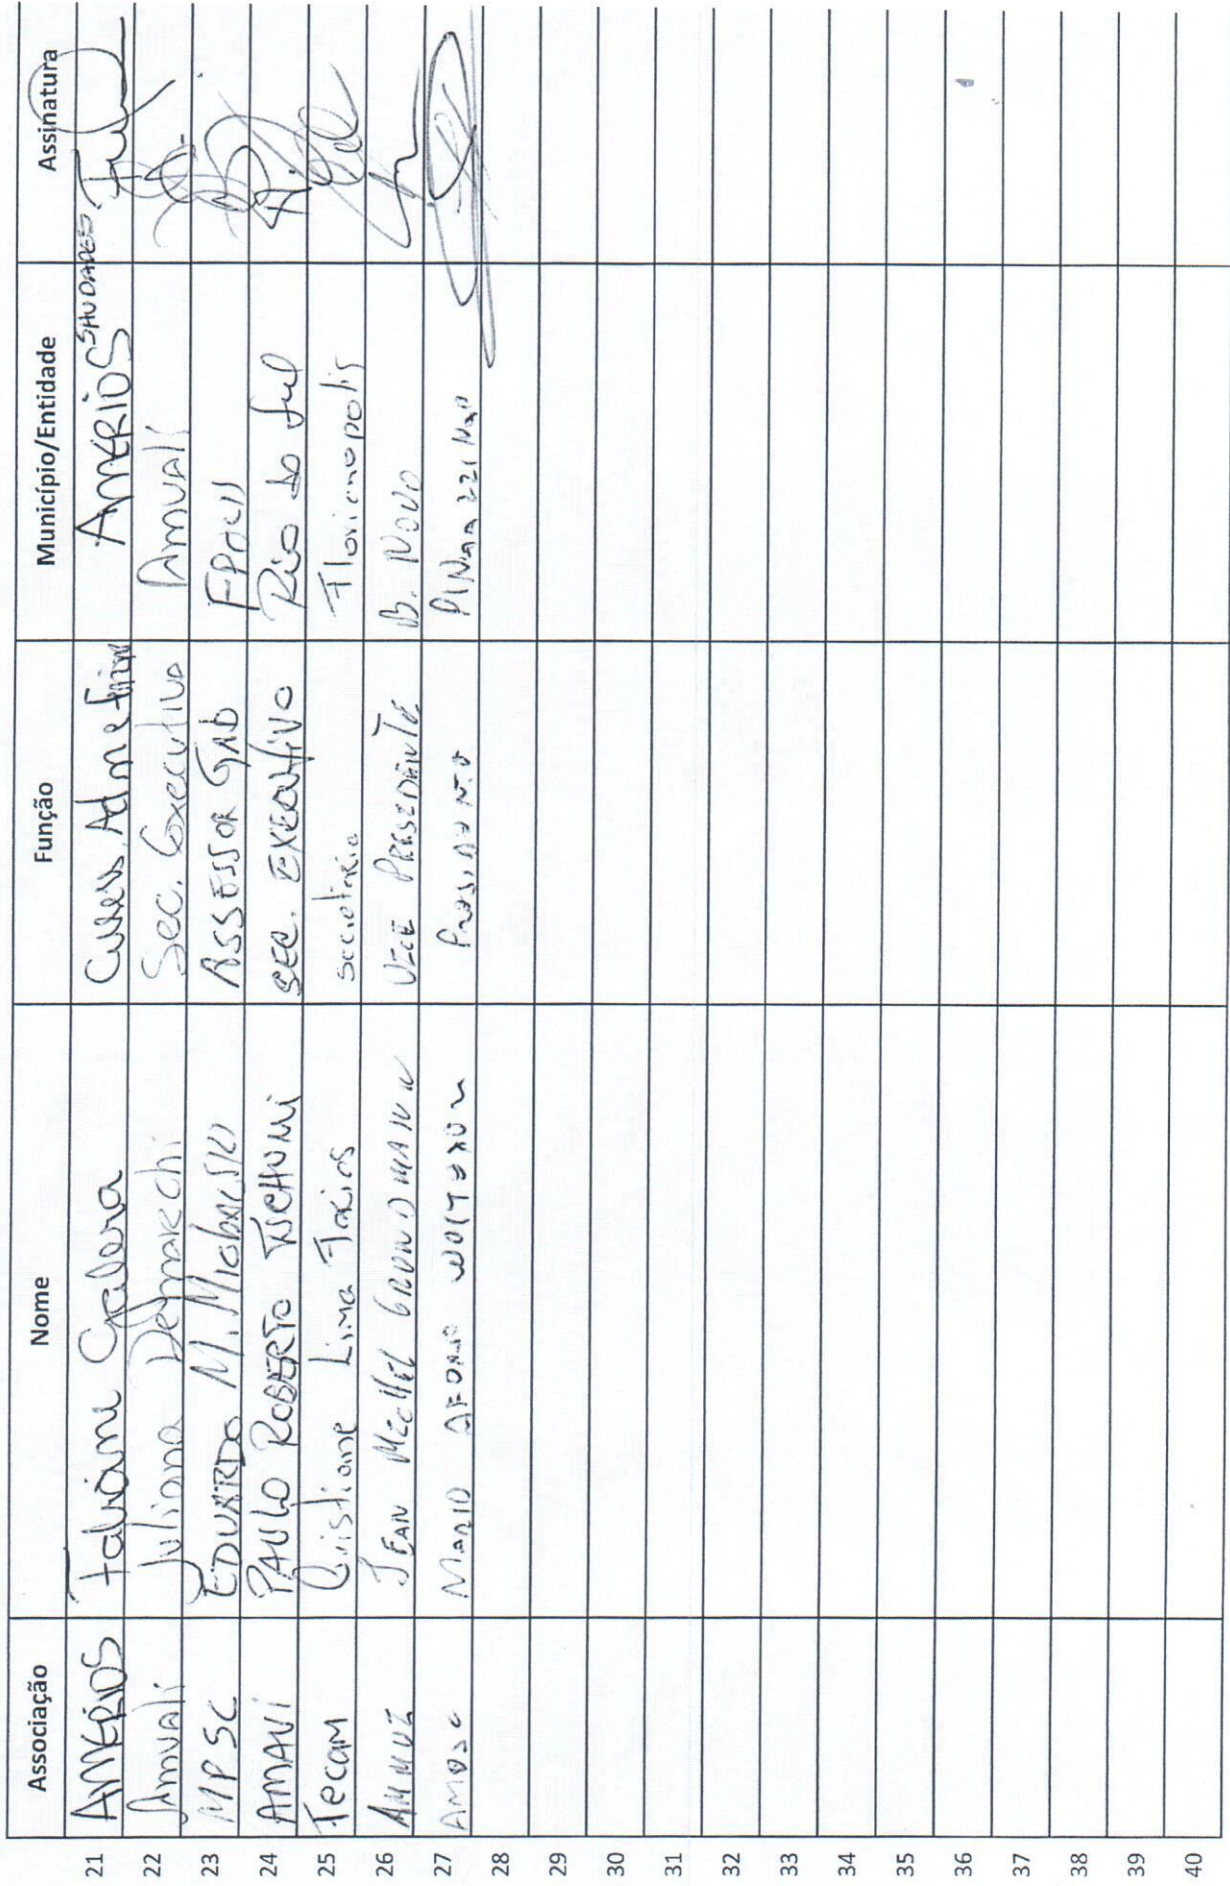 Associação Nome Função Município/Entidade Assinatura
21 AMERIOS Fabiani AMERIOS SAUDADES
22 Amvali Juliana Demarchi Sec. Executiva Amvali
23 MPSC EDUARDO M. ASSESSOR GAB FPOLIS
24 AMAVI PAULO ROBERTO TSCHUMI SEC. EXECUTIVO Rio do Sul
25 Fecam Cristiane Lima Secretária Florianopolis
26 JEAN MICHEL GRUNDMANN VICE PRESIDENTE B. NOVO
27 AMOSC MARIO AFONSO
28
29
30
31
32
33
34
35
36
37
38
39
40